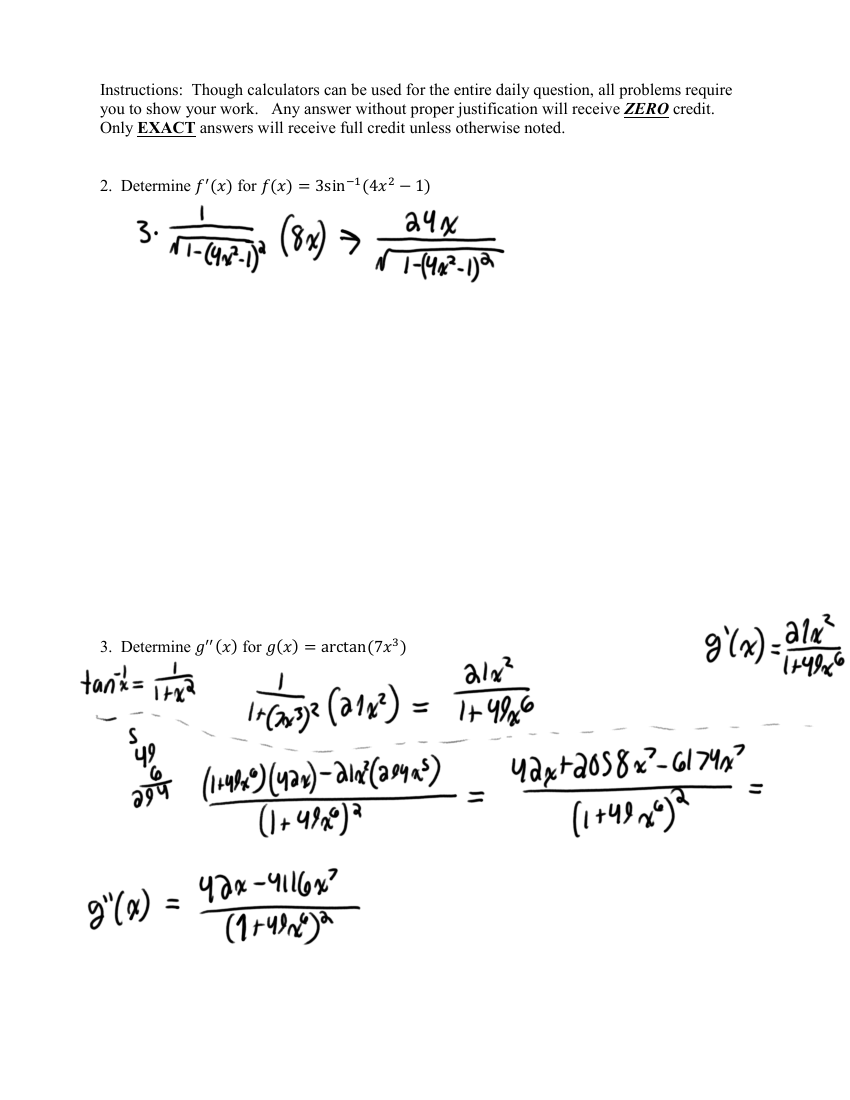 Instructions: Though calculators can be used for the entire daily question, all problems require
you to show your work. Any answer without proper justification will receive ZERO credit.
Only EXACT answers will receive full credit unless otherwise noted.
2. Determine f′(x) for f(x) = 3sin⁻¹(4x² − 1)
3· 1/√(1-(4x²-1)²) (8x) ⇒ 24x/√(1-(4x²-1)²)
3. Determine g′′(x) for g(x) = arctan(7x³)
g'(x) = 21x²/(1+49x⁶)
tan⁻¹x = 1/(1+x²)
1/(1+(7x³)²) (21x²) = 21x²/(1+49x⁶)
5
49
6
294
((1+49x⁶)(42x)-21x²(294x⁵))/(1+49x⁶)² = (42x+2058x⁷-6174x⁷)/(1+49x⁶)² =
g''(x) = (42x-4116x⁷)/(1+49x⁶)²